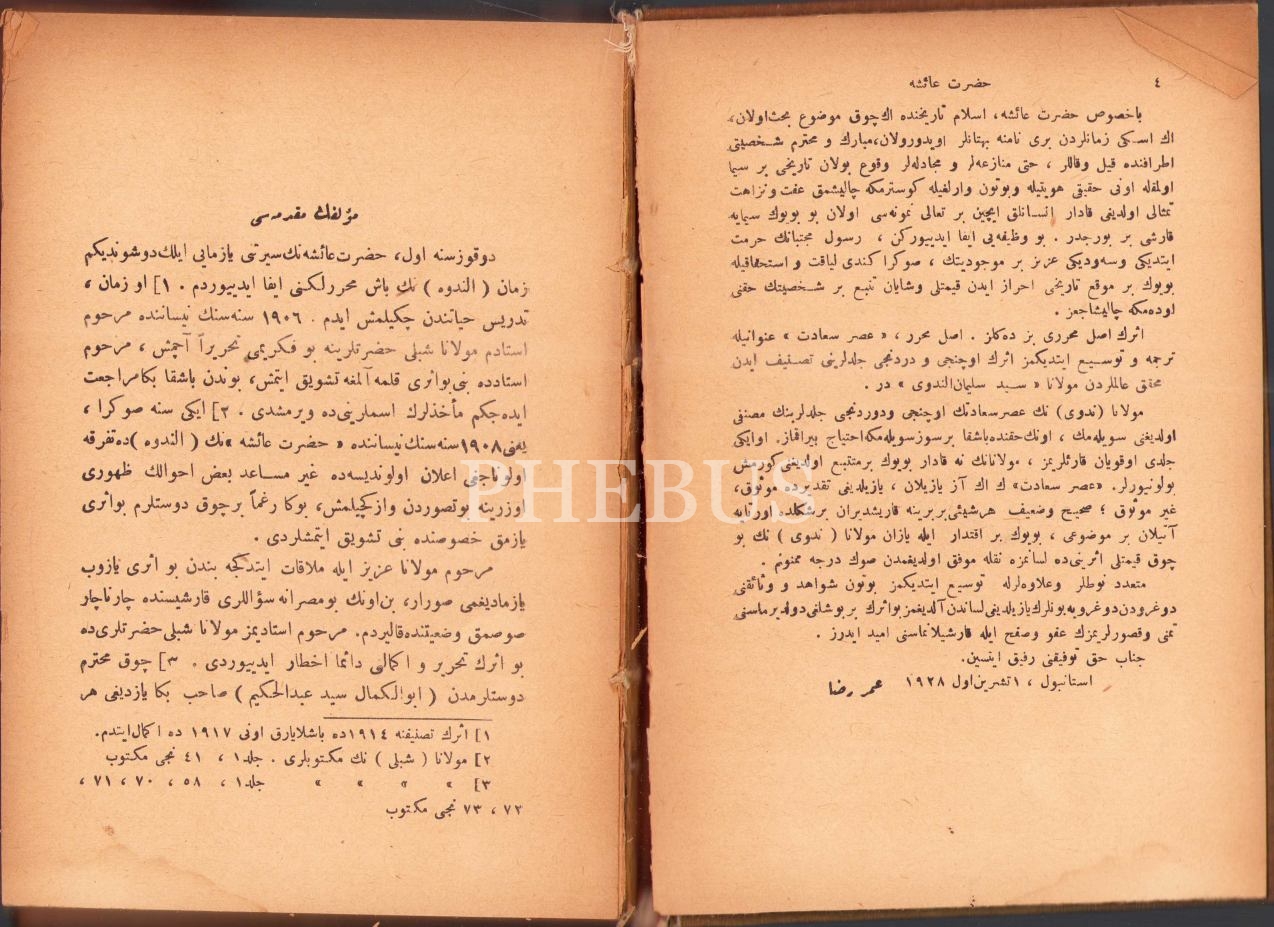 ٤
حضرت عائشه
باخصوص حضرت عائشه، اسلام تاریخنده اك‌چوق موضوع بحث‌اولان،
اك اسكی زمانلردن بری نامنه بهتانلر اویدورولان،مبارك و محترم شخصیتی
اطرافنده قیل وقاللر ، حتی منازعه‌لر و مجادله‌لر وقوع بولان تاریخی بر سیما
اولمقله اونی حقیقی هویتیله وبوتون وارلغیله كوسترمكه چالیشمق عفت ونزاهت
تمثالی اولدیغی قادار انسانلق ایچین بر تعالی نمونه‌سی اولان بو بویوك سیمایه
قارشی بر بورجدر . بو وظیفه‌یی ایفا ایدییوركن ، رسول مجتبانك حرمت
ایتدیكی وسه‌ودیكی عزیز بر موجودیتك ، صوكرا كندی لیاقت و استحقاقیله
بویوك بر موقع تاریخی احراز ایدن قیمتلی وشایان تتبع بر شخصیتك حقنی
اوده‌مكه چالیشاجغز .
اثرك اصل محرری بز ده‌كلز . اصل محرر ، « عصر سعادت » عنوانیله
ترجمه و توسیع ایتدیكمز اثرك اوچنجی و دردنجی جلدلرینی تصنیف ایدن
محقق عالملردن مولانا « سید سلیمان‌الندوی » در .
مولانا (ندوی) نك عصرسعادتك اوچنجی ودوردنجی جلدلرینك مصنفی
اولدیغنی سویله‌مك ، اونك‌حقنده‌باشقا برسوزسویله‌مكه‌احتیاج بیراقماز. اوایكی
جلدی اوقویان قارئلریمز ، مولانانك نه قادار بویوك برمتتبع اولدیغنی‌كورمش
بولونیورلر. «عصر سعادت» ك اك آز یازیلان ، یازیلدیغی تقدیرده موثوق،
غیر موثوق ؛ صحیح وضعیف هرشیئی‌بربرینه قاریشدیران برشكلده اورتایه
آتیلان بر موضوعی ، بویوك بر اقتدار ایله یازان مولانا ( ندوی ) نك بو
چوق قیمتلی اثرینی‌ده لسانمزه نقله موفق اولدیغمدن صوك درجه ممنونم .
متعدد نوطلر وعلاوه‌لرله توسیع ایتدیكمز بوتون شواهد و وثائقنی
دوغرودن‌دوغرویه‌بونلرك‌یازیلدیغی‌لساندن‌آلدیغمزبواثرك بربوشلغی‌دولدیرماسنی
تمنی وقصورلریمزك عفو وصفح ایله قارشیلانماسنی امید ایدرز .
جناب حق توفیقنی رفیق ایتسین.
استانبول ، ١ تشرین‌اول ١٩٢٨ عمر رضا
مؤلفك مقدمه‌سی
دوقوزسنه اول، حضرت‌عائشه‌نك سیرتنی یازمایی ایلك‌دوشوندیكم
زمان ( الندوه ) نك باش محررلكنی ایفا ایدییوردم . ١] او زمان ،
تدریس حیاتندن چكیلمش ایدم . ١٩٠٦ سنه‌سنك نیساننده مرحوم
استادم مولانا شبلی حضرتلرینه بو فكریمی تحریراً آچمش ، مرحوم
استادده بنی‌بواثری قلمه‌آلمغه تشویق ایتمش، بوندن باشقا بكامراجعت
ایده‌جكم مأخذلرك اسمارینی‌ده ویرمشدی . ٢] ایكی سنه صوكرا ،
یعنی١٩٠٨سنه‌سنك‌نیساننده « حضرت عائشه »نك ( الندوه )ده‌تفرقه
اولوناجغی اعلان اولوندیسه‌ده غیر مساعد بعض احوالك ظهوری
اوزرینه بوتصوردن وازكچیلمش، بوكا رغماً برچوق دوستلرم بواثری
یازمق خصوصنده بنی تشویق ایتمشلردی .
مرحوم مولانا عزیز ایله ملاقات ایتدكجه بندن بو اثری یازوب
یازمادیغمی صورار، بن‌اونك بومصرانه سؤاللری قارشیسنده چارناچار
صوصمق وضعیتنده‌قالیردم. مرحوم استادیمز مولانا شبلی‌حضرتلری‌ده
بو اثرك تحریر و اكمالی دائما اخطار ایدییوردی . ٣] چوق محترم
دوستلرمدن ( ابوالكمال سید عبدالحكیم ) صاحب بكا یازدیغی هر
١] اثرك تصنیفنه ١٩١٤ده باشلایارق اونی ١٩١٧ ده اكمال‌ایتدم.
٢] مولانا ( شبلی ) نك مكتوبلری . جلد١ ، ٤١ نجی مكتوب
٣] » » » » جلد١ ، ٥٨ ، ٧٠ ، ٧١ ،
٧٢ ، ٧٣ نجی مكتوب
PHEBUS